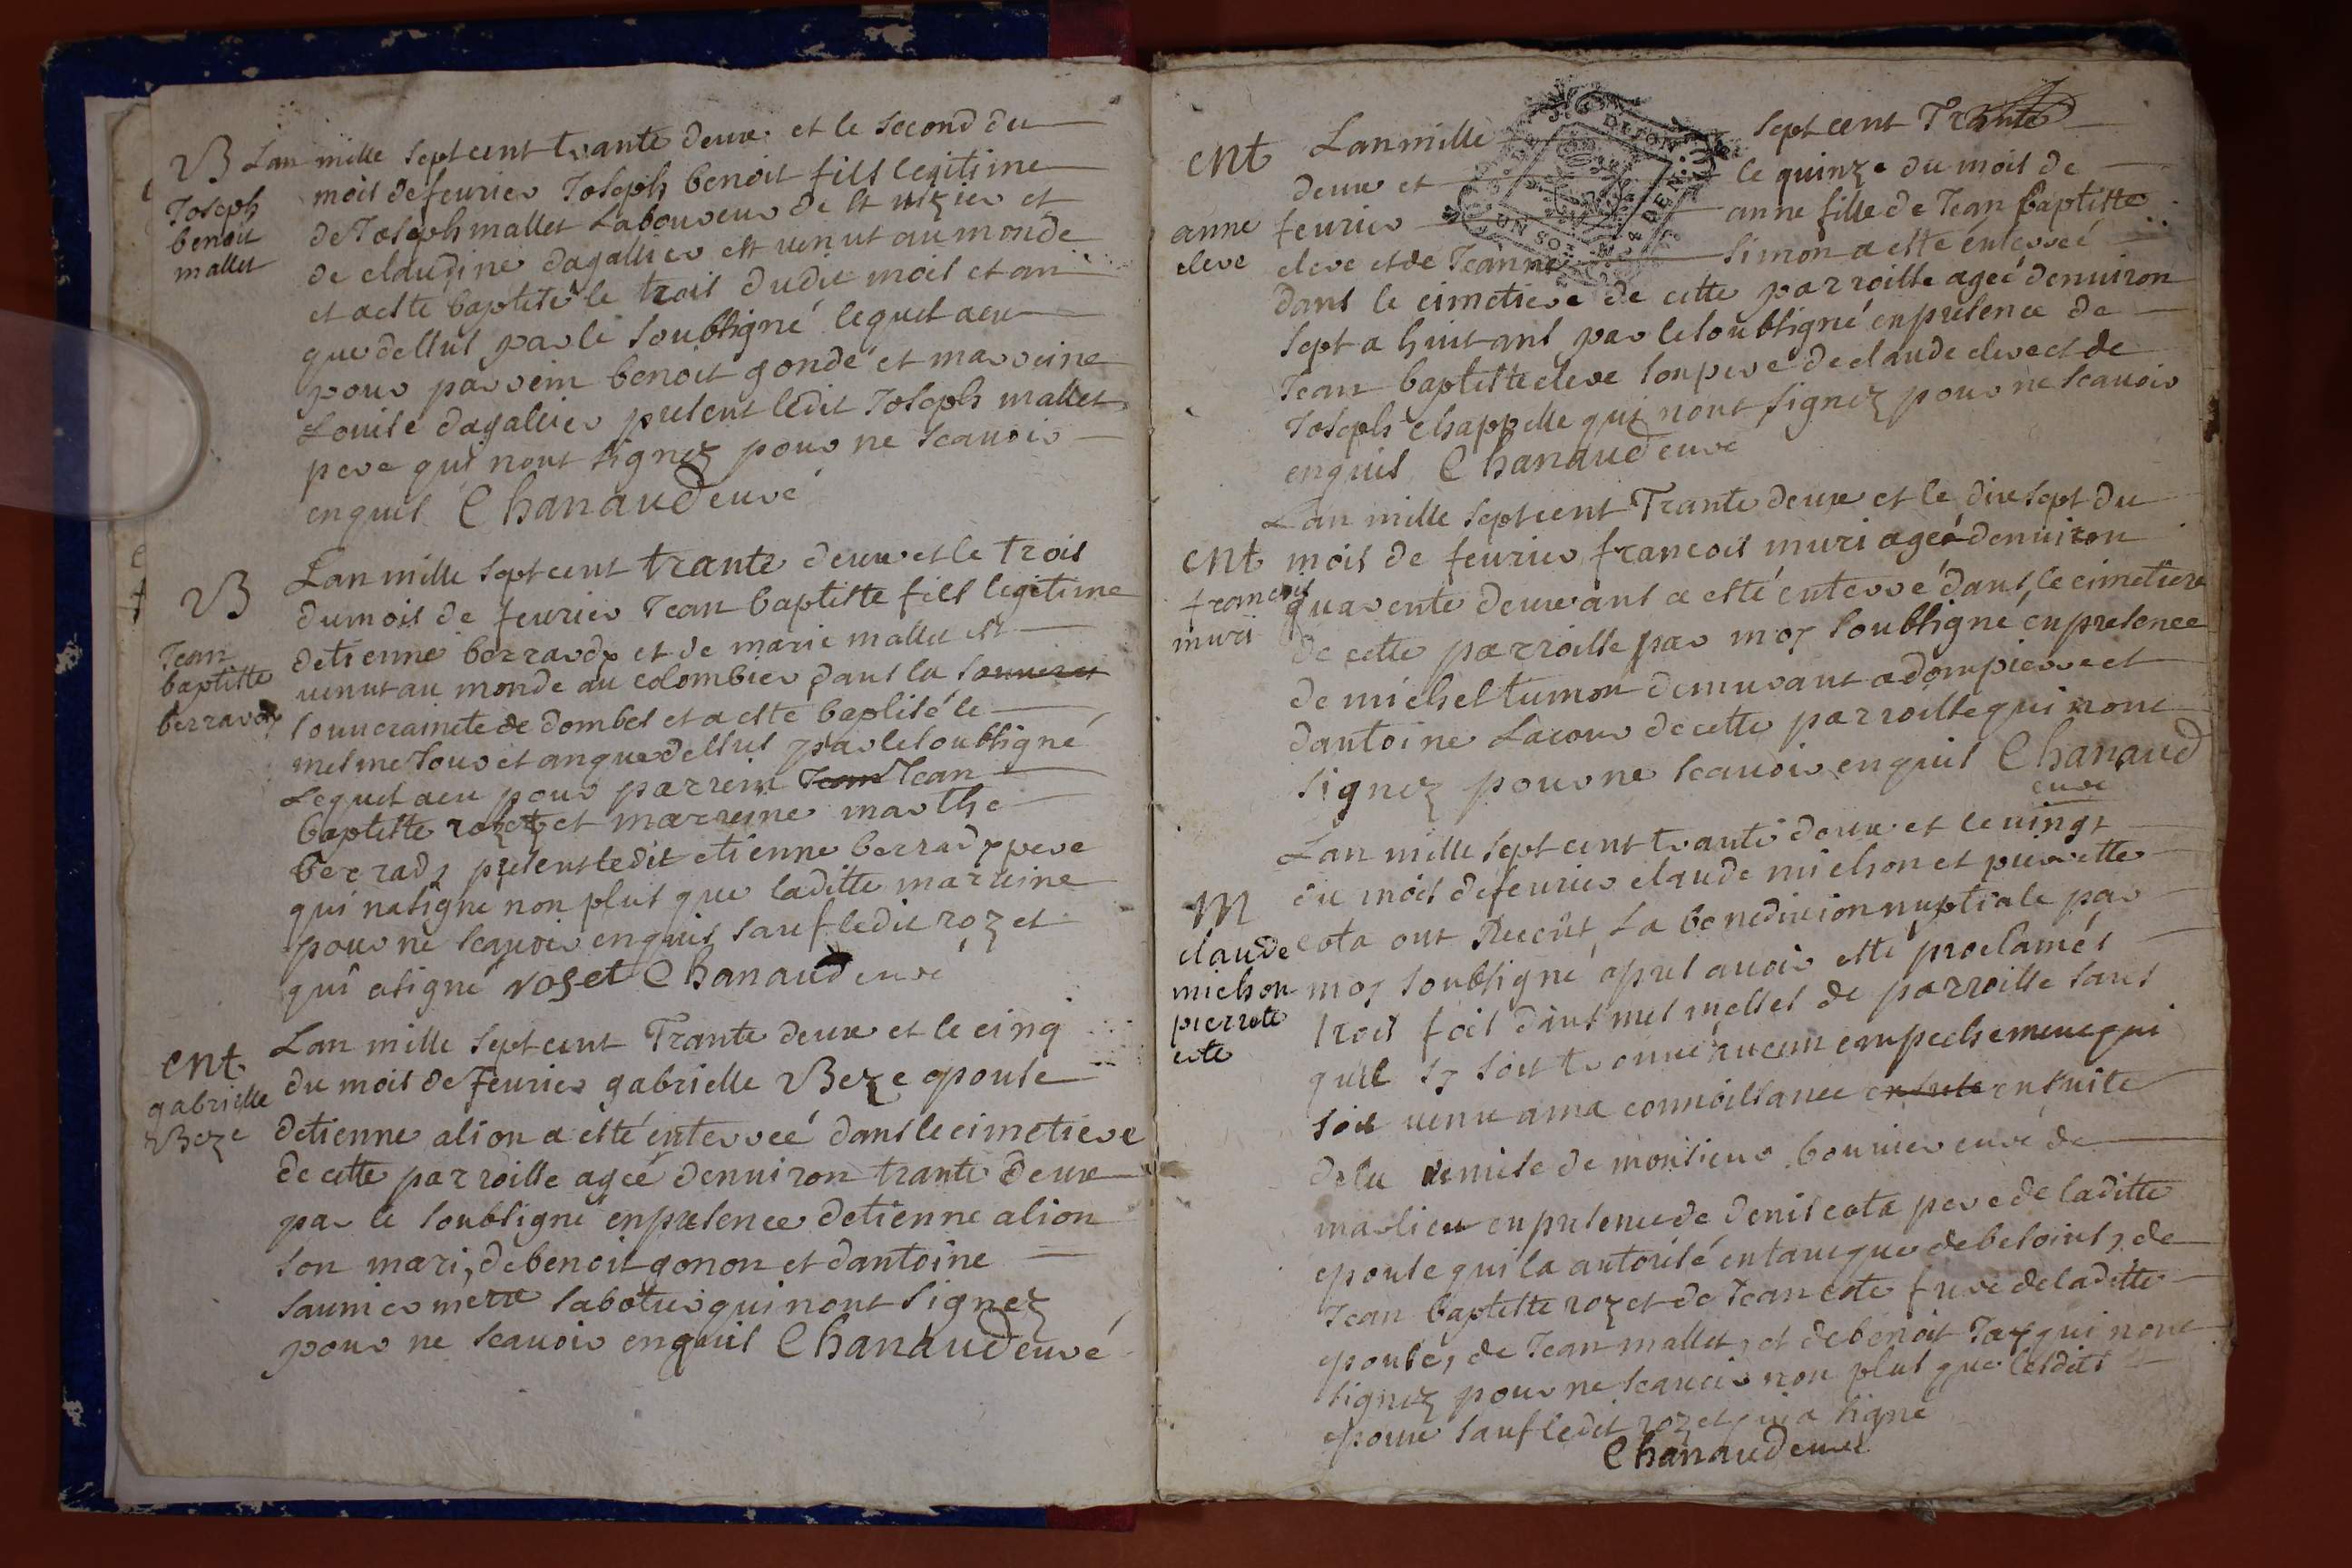 B Lan mille sept cent trante deux et le second du
Joseph
benoit
mallet
mois de feurier Joseph benoit fils legitime
de Joseph mallet Laboureur de st nizier et
de claudine dagallier est uenut au monde
et a este baptisé le trois dudit mois et an
que dessus par le soubsigné lequel a eu
pour parrein benoit gonde et marreine
Louise dagallier present ledit Joseph mallet
pere qui nont signez pour ne scauoir
enquis Chanaud curé
B
Jean
baptiste
berrardy
Lan mille sept cent trante deux et le trois
du mois de feurier Jean baptiste fils legitime
detienne berrardy et de marie mallet est
uenut au monde au colombier dans la
souueraineté de dombes et a esté baptisé le
mesme Jour et an que dessus par le soubsigné
Lequel a eu pour parrein Jean Jean
baptiste rozet et marreine marthe
berrady present ledit etienne berrady pere
qui na signé non plus que laditte marreine
pour ne scauoir enquis sauf ledit rozet
qui a signé roset Chanaud curé
ent
gabrielle
Beze
Lan mille sept cent Trante deux et le cinq
du mois de feurier gabrielle Beze epouse
detienne alion a esté enterreé dans le cimetiere
de cette parroisse ageé denuiron trante deux
par le soubsigné en presence detienne alion
son mari, de benoit gonon et dantoine
saunier metre sabotier qui nont signez
pour ne scauoir enquis Chanaud curé
ent
anne
eleve
Lan mille sept cent Trante
deux et le quinze du mois de
feurier anne fille de Jean baptiste
eleve et de Jeanne Simon a esté enterreé
dans le cimetiere de cette parroisse ageé denuiron
sept a huit ans par le soubsigné en presence de
Jean baptiste eleve son pere de claude eleve et de
Joseph chappelle qui nont signez pour ne scauoir
enquis Chanaud curé
ent
francois
muri
Lan mille sept cent Trante deux et le dix sept du
mois de feurier francois muri agé denuiron
quarente deux ans a esté enterré dans le cimetiere
de cette parroisse par moy soubsigné en presence
de michel tumon demurant a dompierre et
dantoine Lacour de cette parroisse qui nont
signez pour ne scauoir enquis Chanaud
curé
M
claude
michon
pierrete
cote
Lan mille sept cent trante deux et le uingt
du mois de feurier claude michon et pierrette
cota ont Receut La benediction nuptiale par
moy soubsigné apres auoir este proclamés
trois fois dans mes messes de parroisse sans
quil sy soit trouué aucun empechement qui
soit uenu a ma connoissance ensuite ensuite
de la remise de monsieur bouuier curé de
marlieu en presence de denis cota pere de laditte
epouse qui la autorisé entant que de besoins, de
Jean baptiste rozet de Jean cote frere de laditte
epouse, de Jean mallet, et de benoit Jay qui nont
signez pour ne scauoir non plus que lesdits
epoux sauf ledit rozet qui a signé
Chanaud curé